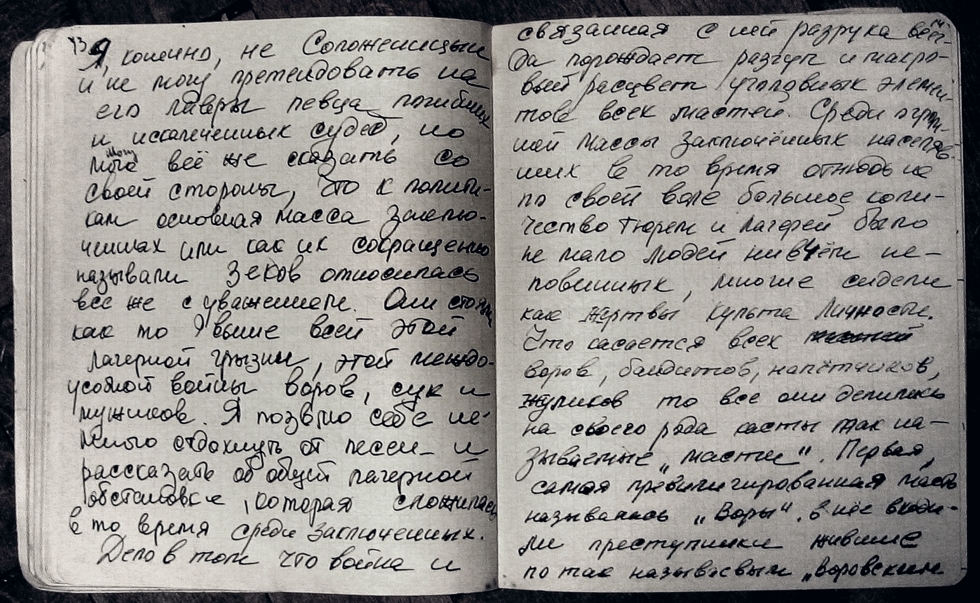 13
Я, конечно, не Соложеницын
и не могу претендовать на
его лавры певца погибших
и искалеченных судеб, но
могу всё же сказать со
своей стороны, что к полити-
кам основная масса заклю-
ченных или как их сокращенно
называли Зеков относилась
все же с уважением. Они стояли
как то выше всей этой
лагерной грызни, этой междо-
усобной войны воров, сук и
мужиков. Я позволю себе не-
много отдохнуть от песен и
рассказать об общей лагерной
обстановке, которая сложилась
в то время среди заключенных.
Дело в том что война и
14
связанная с ней разруха всег-
да порождает разгул и махро-
вый расцвет уголовных элемен-
тов всех мастей. Среди огром-
ной массы заключённых населяв-
ших в то время отнюдь не
по своей воле большое коли-
чество тюрем и лагерей было
не мало людей ни в чём не-
повинных, многие сидели
как жертвы культа личности.
Что касается всех
воров, бандитов, налётчиков,
жуликов то все они делились
на своего рода касты так на-
зываемые „масти". Первая,
самая превилигированная масть
называлась „Воры". в неё входи-
ли преступники жившие
по так называемым „воровским